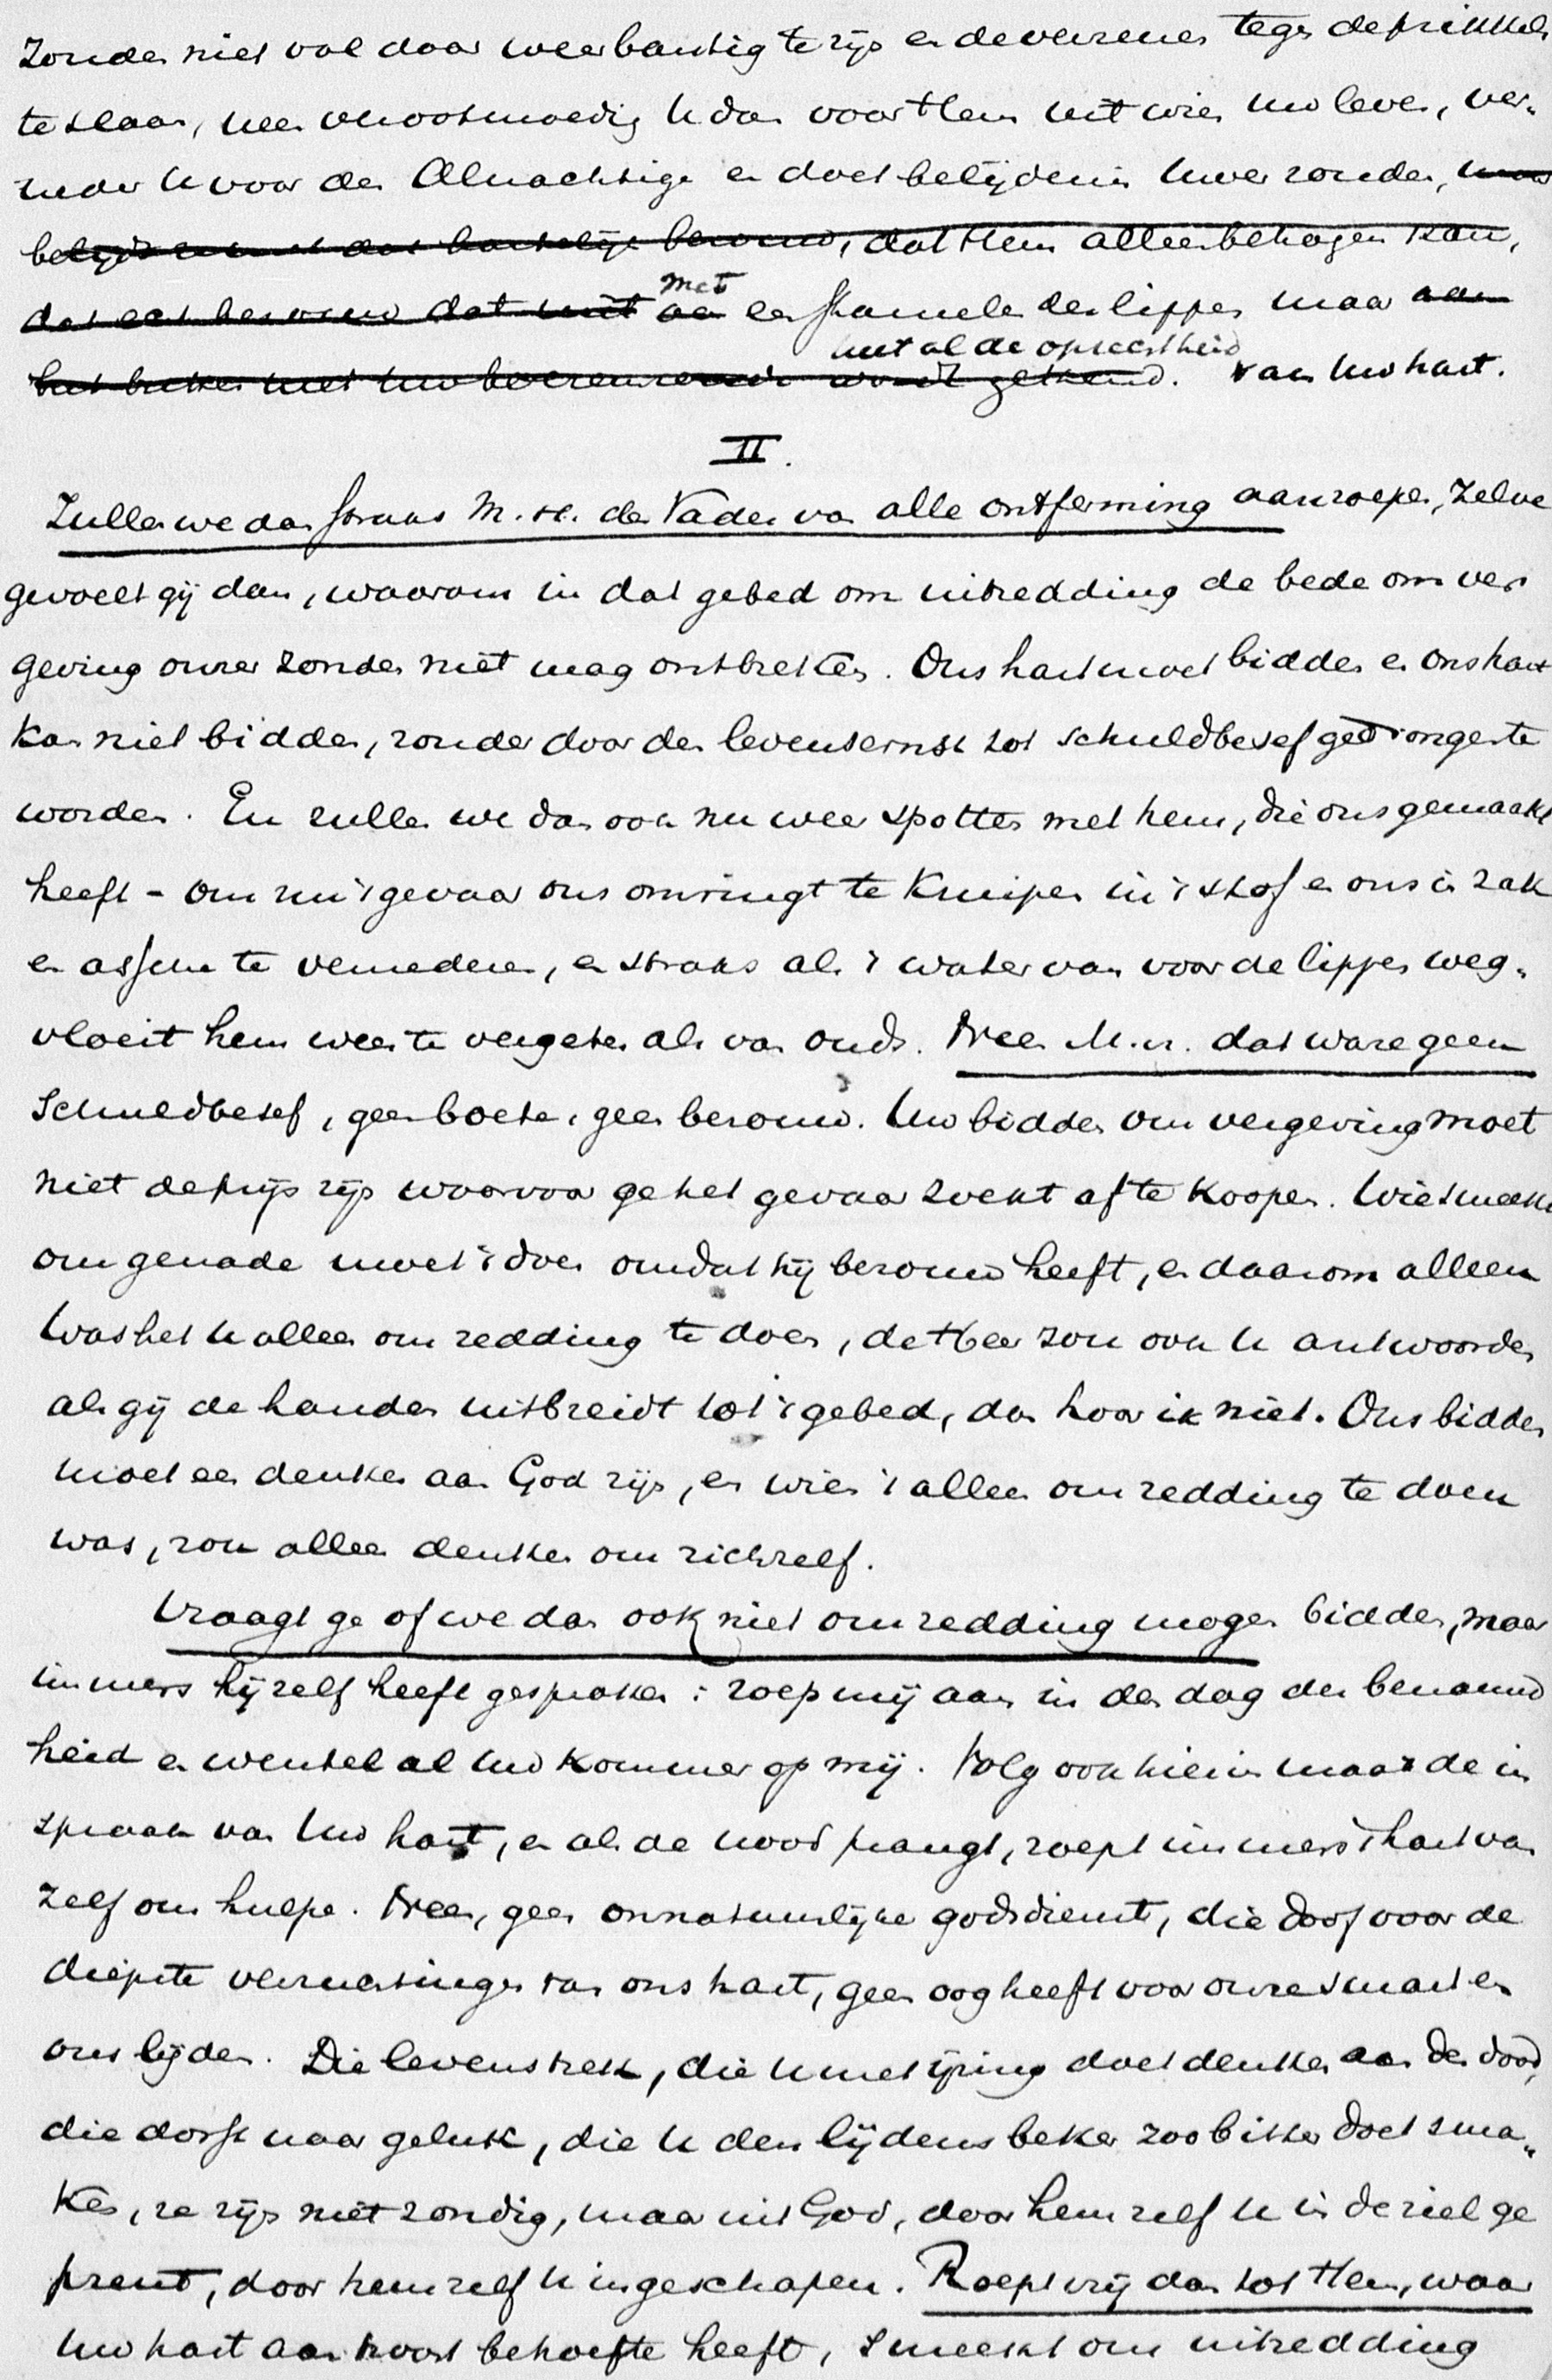 Zonder niet val daar weerbarstig te zijn en de verzenen tegen de prikkels
te slaan, neen ootmoedig U dan voor Hem uit wien Uw leven, ver-
neder U voor den Almachtige en doet belijdenis Uwer zonden,
dat Hem alleen behagen kan,
dat echt berouw dat uit met een stamelen der lippen maar aan
met al de oprechtheid
wordt gekend. van Uw hart.
II.
Zullen we dan straks M. H. den Vader van alle ontferming aanroepen, Zelve
gevoelt gij dan, waarom in dat gebed om uitredding de bede om ver
geving onzer zonden niet mag ontbreken. Ons hart moet bidden en ons hart
kan niet bidden, zonder door den levensernst tot schuldbesef gedrongen te
worden. En zullen we dan ook nu weer spotten met hem, die ons gemaakt
heeft - om nu 't gevaar ons omringt te kruipen in 't stof en ons in zak
en assche te vernederen, en straks als 't water van voor de lippen weg-
vloeit hem weer te vergeten als van ouds. Neen M. H. dat ware geen
Schuldbesef, geen boete, geen berouw. Uw bidden om vergeving moet
niet de prijs zijn waarvoor ge het gevaar zoekt af te koopen. Wie smeekt
om genade moet 't doen omdat hij berouw heeft, en daarom alleen
Was het U alleen om redding te doen, de Heer zou ook U antwoorden
als gij de handen uitbreidt tot 't gebed, dan hoor ik niet. Ons bidden
moet een denken aan God zijn, en wien 't alleen om redding te doen
was, zou alleen denken om zichzelf.
Vraagt ge of we dan ook niet om redding mogen bidden, maar
immers hij zelf heeft gesproken: roep mij aan in den dag der benauwd
heid en wentel al Uw kommer op mij. Volg ook hierin maar de in
spraak van Uw hart, en als de nood prangt, roept immers 't hart van
zelf om hulpe. Neen, geen onnatuurlijke godsdienst, die doof voor de
diepste verzuchtingen van ons hart, geen oog heeft voor onze smart en
ons lijden. Die levenstrek, die U met ijzing doet denken aan den dood,
die dorst naar geluk, die U den lijdensbeker zoo bitter doet sma-
ken, ze zijn niet zondig, maar uit God, door hem zelf U in de ziel ge
prent, door hem zelf U ingeschapen. Roept vrij dan tot Hem, waar
Uw hart aan troost behoefte heeft, smeekt om uitredding